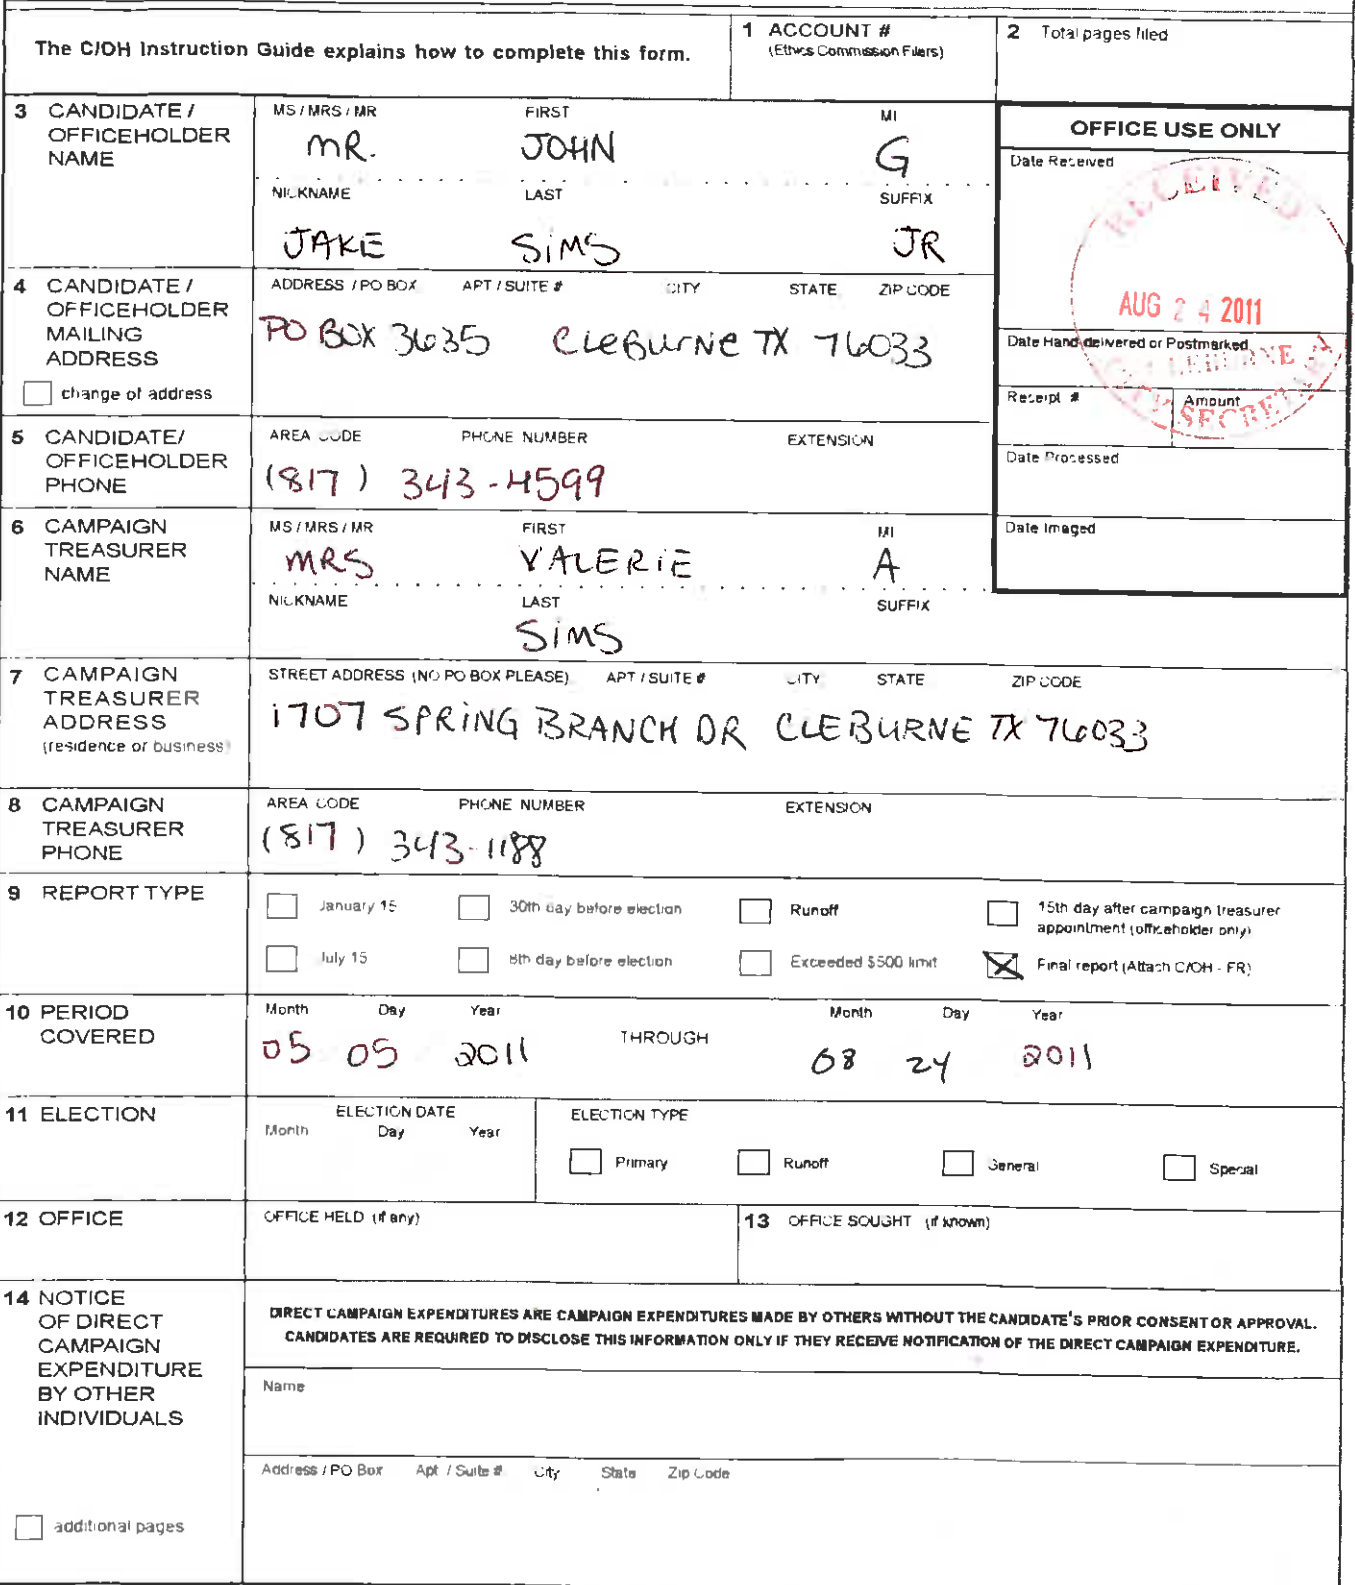 The C/OH Instruction Guide explains how to complete this form.
1 ACCOUNT #
(Ethics Commission Filers)
2 Total pages filed
3 CANDIDATE / OFFICEHOLDER NAME
MS / MRS / MR FIRST MI
MR. JOHN G
NICKNAME LAST SUFFIX
JAKE SIMS JR
OFFICE USE ONLY
Date Received
RECEIVED
AUG 24 2011
CLEBURNE
CITY SECRETARY
Date Hand delivered or Postmarked
Receipt # Amount
Date Processed
Date Imaged
4 CANDIDATE / OFFICEHOLDER MAILING ADDRESS
change of address
ADDRESS / PO BOX APT / SUITE # CITY STATE ZIP CODE
PO BOX 3635 CLEBURNE TX 76033
5 CANDIDATE/ OFFICEHOLDER PHONE
AREA CODE PHONE NUMBER EXTENSION
(817) 343-4599
6 CAMPAIGN TREASURER NAME
MS / MRS / MR FIRST MI
MRS VALERIE A
NICKNAME LAST SUFFIX
SIMS
7 CAMPAIGN TREASURER ADDRESS
(residence or business)
STREET ADDRESS (NO PO BOX PLEASE) APT / SUITE # CITY STATE ZIP CODE
1707 SPRING BRANCH DR CLEBURNE TX 76033
8 CAMPAIGN TREASURER PHONE
AREA CODE PHONE NUMBER EXTENSION
(817) 343-1188
9 REPORT TYPE
January 15 30th day before election Runoff 15th day after campaign treasurer appointment (officeholder only)
July 15 8th day before election Exceeded $500 limit Final report (Attach C/OH - FR)
10 PERIOD COVERED
Month Day Year THROUGH Month Day Year
05 05 2011 08 24 2011
11 ELECTION
ELECTION DATE
Month Day Year
ELECTION TYPE
Primary Runoff General Special
12 OFFICE
OFFICE HELD (if any)
13 OFFICE SOUGHT (if known)
14 NOTICE OF DIRECT CAMPAIGN EXPENDITURE BY OTHER INDIVIDUALS
additional pages
DIRECT CAMPAIGN EXPENDITURES ARE CAMPAIGN EXPENDITURES MADE BY OTHERS WITHOUT THE CANDIDATE'S PRIOR CONSENT OR APPROVAL.
CANDIDATES ARE REQUIRED TO DISCLOSE THIS INFORMATION ONLY IF THEY RECEIVE NOTIFICATION OF THE DIRECT CAMPAIGN EXPENDITURE.
Name
Address / PO Box Apt / Suite # City State Zip Code